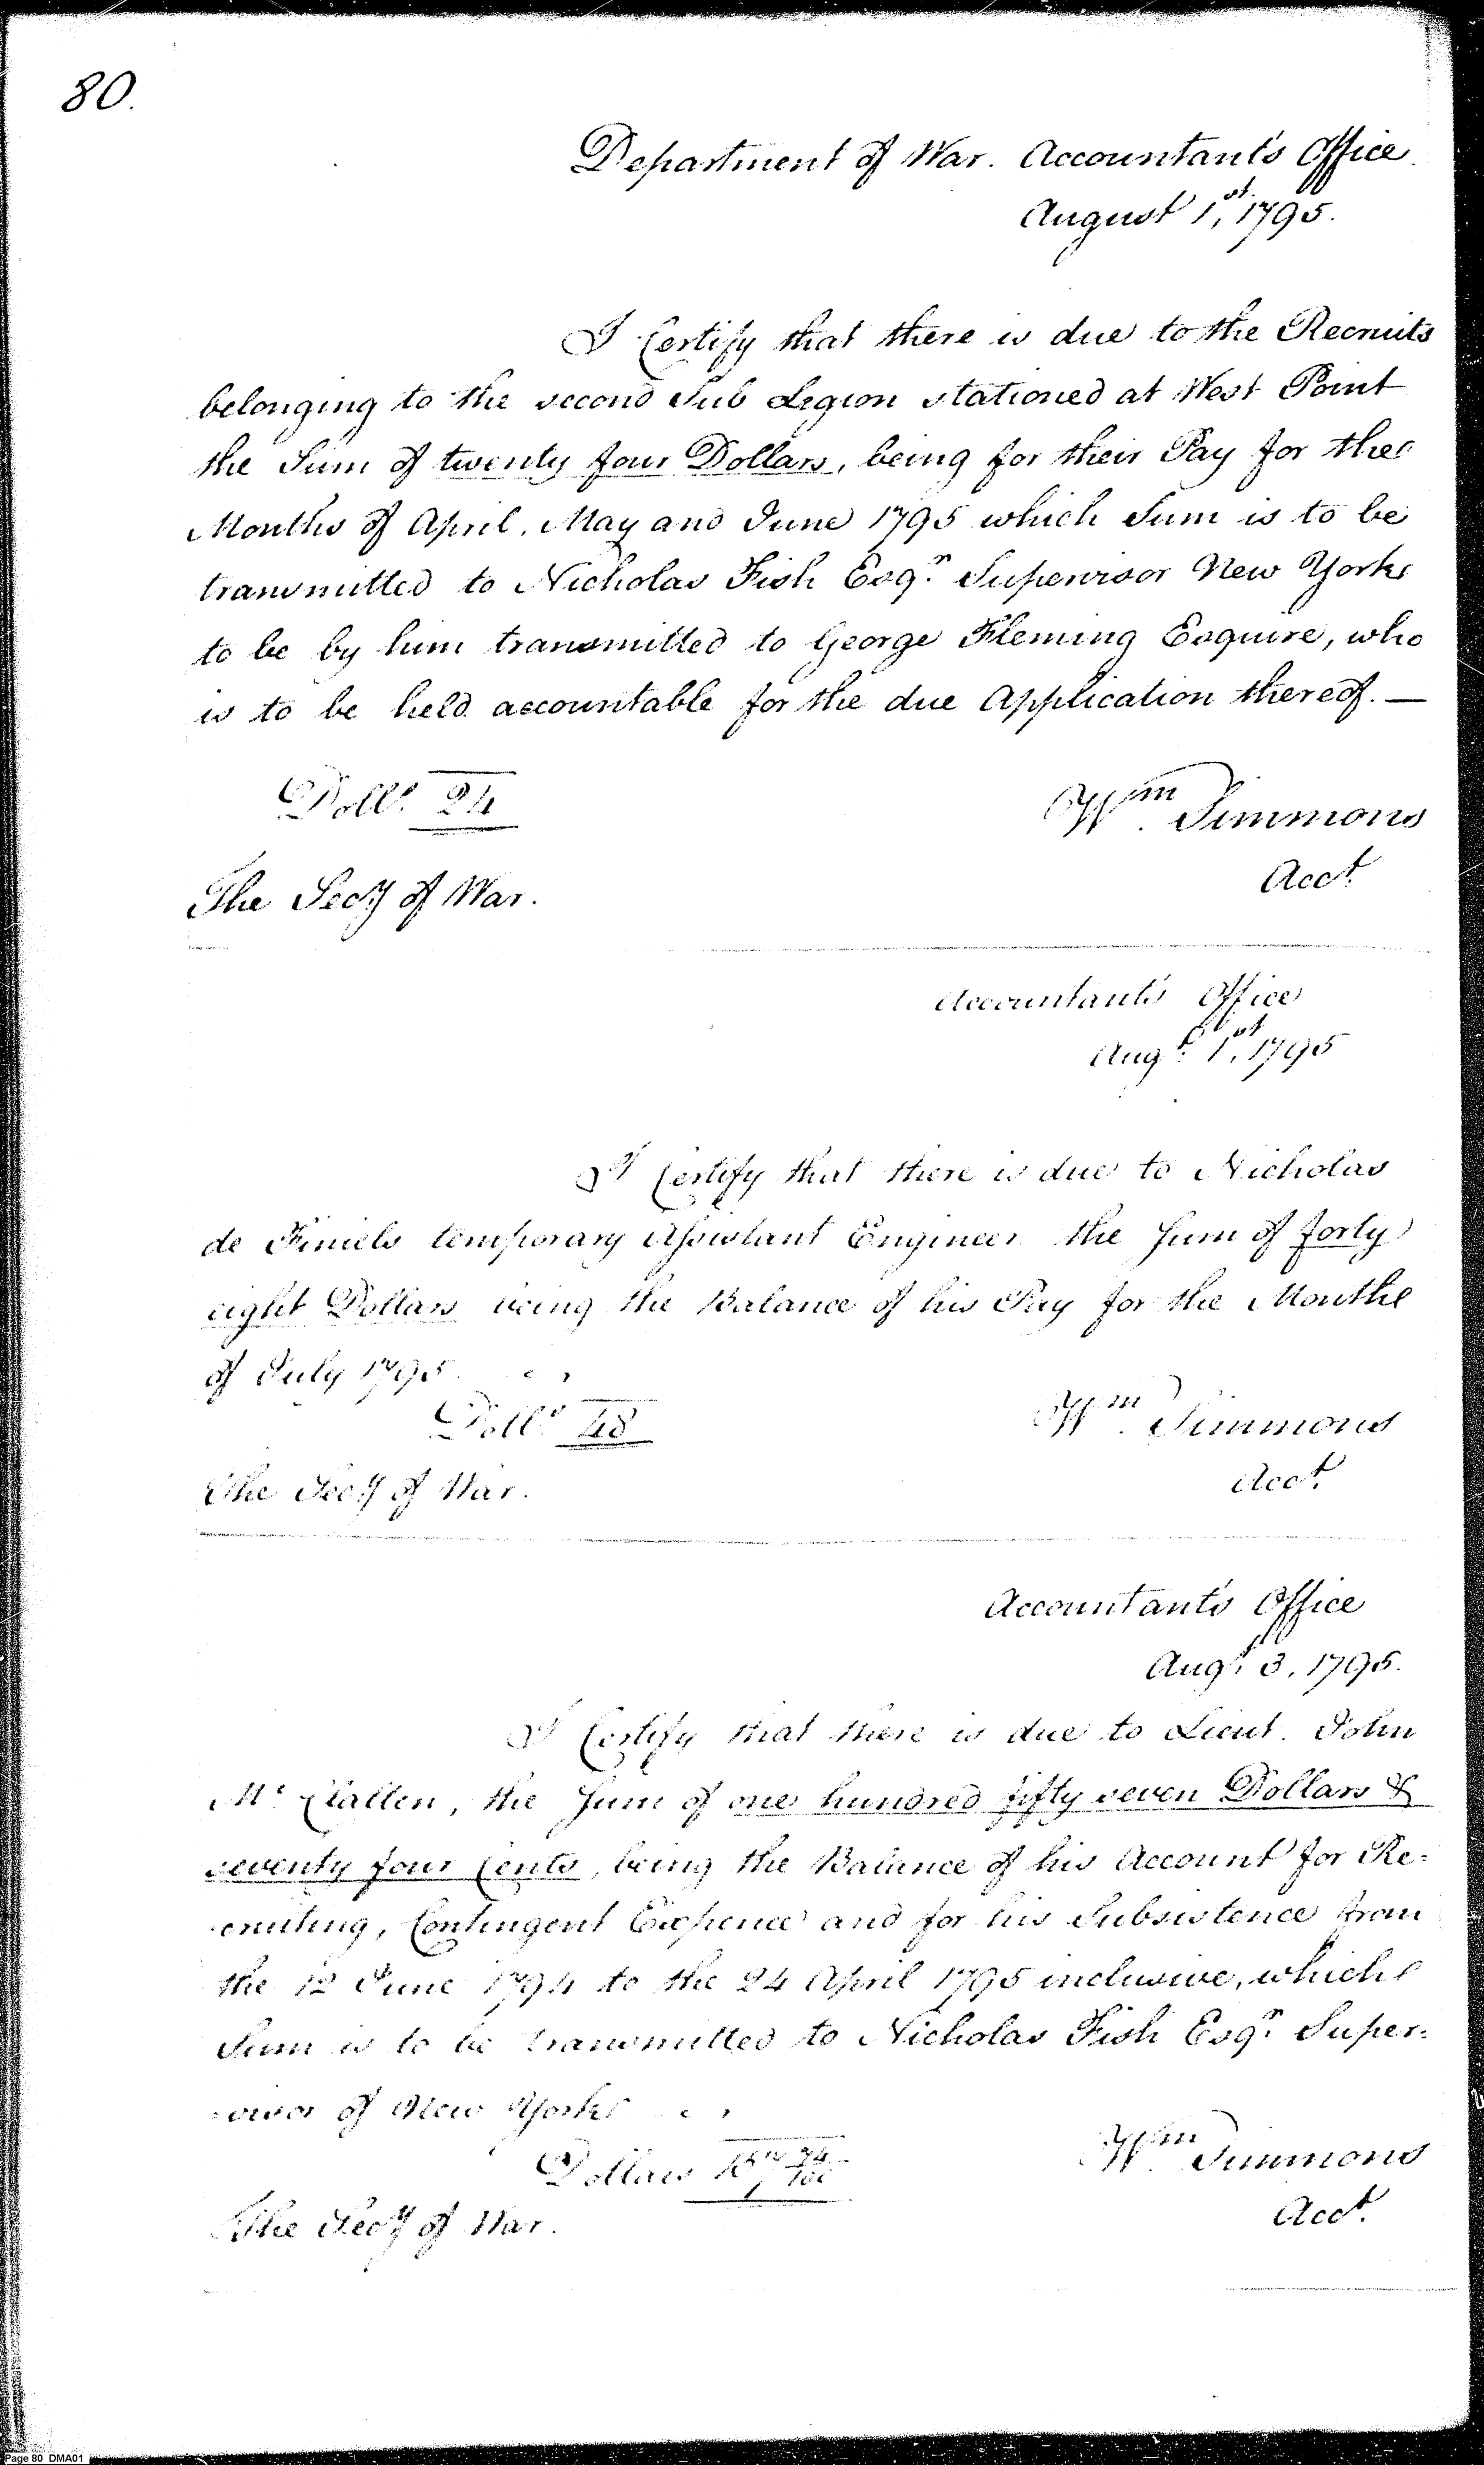 80.
Department of War. Accountant's Office.
August 1st, 1795.
I Certify that there is due to the Recruits
belonging to the second Sub Legion stationed at West Point
the Sum of twenty four Dollars, being for their Pay for the
Months of April, May and June 1795 which Sum is to be
transmitted to Nicholas Fish Esqr. Supervisor New York
to be by him transmitted to George Fleming Esquire, who
is to be held accountable for the due Application thereof. —
Dolls. 24
Wm. Simmons
Acct.
The Secy of War.
Accountant's Office
Augt. 1st, 1795
I Certify that there is due to Nicholas
de Finiels temporary Assistant Engineer the Sum of forty
eight Dollars being the Balance of his Pay for the Month
of July 1795
Dolls. 48
Wm. Simmons
Acct.
The Secy of War.
Accountant's Office
Augt. 3, 1795.
I Certify that there is due to Lieut. John
Mc. Clallen, the Sum of one hundred fifty seven Dollars &
seventy four Cents, being the Balance of his Account for Re=
cruiting, Contingent Expence and for his Subsistence from
the 12 June 1794 to the 24 April 1795 inclusive, which
Sum is to be transmitted to Nicholas Fish Esqr. Super=
=visor of New York
Dollars 157 74/100
Wm. Simmons
Acct.
The Secy of War.
Page 80 DMA01